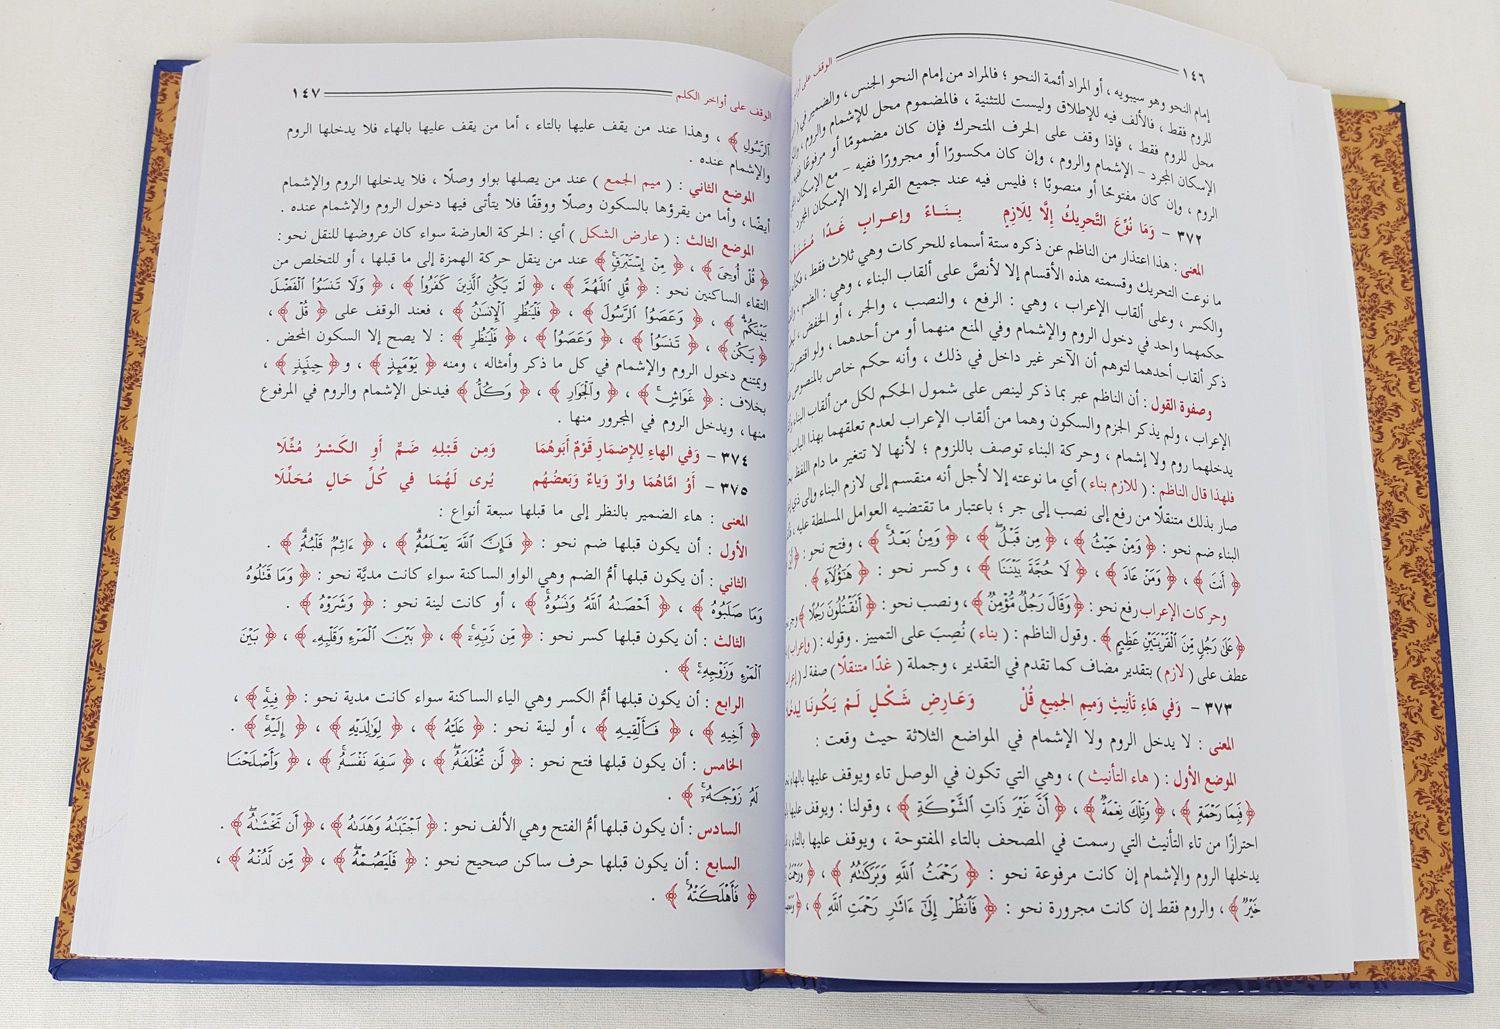 ١٤٦ الوقف على
إمام النحو وهو سيبويه ، أو المراد أئمة النحو ؛ فالمراد من إمام النحو الجنس ، والضمير في
للروم فقط ، فالألف فيه للإطلاق وليست للتثنية ، فالمضموم محل للإشمام والروم ،
محل للروم فقط ، فإذا وقف على الحرف المتحرك فإن كان مضمومًا أو مرفوعًا
الإسكان المجرد – الإشمام والروم ، وإن كان مكسورًا أو مجرورًا ففيه – مع الإسكان
الروم ، وإن كان مفتوحًا أو منصوبًا ؛ فليس فيه عند جميع القراء إلا الإسكان المجرد
٣٧٢ – وَمَا نُوِّعَ التَّحْرِيكُ إِلَّا لِلَازِمٍ بِنَاءً وإعرابٍ غَدًا
المعنى : هذا اعتذار من الناظم عن ذكره ستة أسماء للحركات وهي ثلاث فقط ،
ما نوعت التحريك وقسمته هذه الأقسام إلا لأنصَّ على ألقاب البناء ، وهي : الضم ،
والكسر ، وعلى ألقاب الإعراب ، وهي : الرفع ، والنصب ، والجر ، أو الخفض ،
حكمهما واحد في دخول الروم والإشمام وفي المنع منهما أو من أحدهما ، ولو اقتصرت
ذكر ألقاب أحدهما لتوهم أن الآخر غير داخل في ذلك ، وأنه حكم خاص بالمنصوص
وصفوة القول : أن الناظم عبر بما ذكر لينص على شمول الحكم لكل من ألقاب البناء
الإعراب ، ولم يذكر الجزم والسكون وهما من ألقاب الإعراب لعدم تعلقهما بهذا الباب
يدخلهما روم ولا إشمام ، وحركة البناء توصف باللزوم ؛ لأنها لا تتغير ما دام اللفظ
فلهذا قال الناظم : ( للازم بناء ) أي ما نوعته إلا لأجل أنه منقسم إلى لازم البناء وإلى ذي
صار بذلك متنقلًا من رفع إلى نصب إلى جر ؛ باعتبار ما تقتضيه العوامل المسلطة عليه ،
البناء ضم نحو : ﴿ وَمِنْ حَيْثُ ﴾ ، ﴿ مِن قَبْلُ ﴾ ، ﴿ وَمِنْ بَعْدُ ﴾ ، وفتح نحو :
﴿ أَنتَ ﴾ ، ﴿ وَمَنْ عَادَ ﴾ ، ﴿ لَا حُجَّةَ بَيْنَنَا ﴾ ، وكسر نحو : ﴿ هَٰؤُلَاءِ ﴾ .
وحركات الإعراب رفع نحو : ﴿ وَقَالَ رَجُلٌ مُّؤْمِنٌ ﴾ ، ونصب نحو : ﴿ أَتَقْتُلُونَ رَجُلًا ﴾
﴿ عَلَىٰ رَجُلٍ مِّنَ الْقَرْيَتَيْنِ عَظِيمٍ ﴾ . وقول الناظم : ( بناء ) نُصِبَ على التمييز . وقوله : ( وإعراب )
عطف على ( لازم ) بتقدير مضاف كما تقدم في التقدير ، وجملة ( غدًا متنقلًا ) صفة لـ
٣٧٣ – وَفي هَاءِ تَأْنِيثٍ وَمِيمِ الجَمِيعِ قُلْ وَعَارِضِ شَكْلٍ لَمْ يَكُونَا
المعنى : لا يدخل الروم ولا الإشمام في المواضع الثلاثة حيث وقعت :
الموضع الأول : ( هاء التأنيث ) ، وهي التي تكون في الوصل تاء ويوقف عليها بالهاء
﴿ فَبِمَا رَحْمَةٍ ﴾ ، ﴿ وَتِلْكَ نِعْمَةٌ ﴾ ، ﴿ أَنَّ غَيْرَ ذَاتِ الشَّوْكَةِ ﴾ ، وقولنا : ويوقف عليها
احترازًا من تاء التأنيث التي رسمت في المصحف بالتاء المفتوحة ، ويوقف عليها بالتاء ،
يدخلها الروم والإشمام إن كانت مرفوعة نحو : ﴿ رَحْمَتُ اللَّهِ وَبَرَكَاتُهُ ﴾ ،
خَيْرٌ ﴾ ، والروم فقط إن كانت مجرورة نحو : ﴿ فَانظُرْ إِلَىٰ ءَاثَٰرِ رَحْمَتِ اللَّهِ ﴾ ،
الوقف على أواخر الكلم ١٤٧
الرَّسُولِ ﴾ ، وهذا عند من يقف عليها بالتاء ، أما من يقف عليها بالهاء فلا يدخلها الروم
والإشمام عنده .
الموضع الثاني : ( ميم الجمع ) عند من يصلها بواو وصلًا ، فلا يدخلها الروم والإشمام
أيضًا ، وأما من يقرؤها بالسكون وصلًا ووقفًا فلا يتأتى فيها دخول الروم والإشمام عنده .
الموضع الثالث : ( عارض الشكل ) أي : الحركة العارضة سواء كان عروضها للنقل نحو :
﴿ قُلْ أُوحِيَ ﴾ ، ﴿ مِنْ إِسْتَبْرَقٍ ﴾ عند من ينقل حركة الهمزة إلى ما قبلها ، أو للتخلص من
التقاء الساكنين نحو : ﴿ قُلِ اللَّهُمَّ ﴾ ، ﴿ لَمْ يَكُنِ الَّذِينَ كَفَرُوا ﴾ ، ﴿ وَلَا تَنسَوُا الْفَضْلَ
بَيْنَكُمْ ﴾ ، ﴿ وَعَصَوُا الرَّسُولَ ﴾ ، ﴿ فَلْيَنظُرِ الْإِنسَانُ ﴾ ، فعند الوقف على ﴿ قُلْ ﴾ ،
﴿ يَكُنْ ﴾ ، ﴿ تَنسَوُا ﴾ ، ﴿ وَعَصَوُا ﴾ ، ﴿ فَلْيَنظُرِ ﴾ : لا يصح إلا السكون المحض .
ويمتنع دخول الروم والإشمام في كل ما ذكر وأمثاله ، ومنه ﴿ يَوْمَئِذٍ ﴾ ، و﴿ حِينَئِذٍ ﴾ ،
بخلاف : ﴿ غَوَاشٍ ﴾ ، ﴿ وَالْجَوَارِ ﴾ ، ﴿ وَكُلٌّ ﴾ فيدخل الإشمام والروم في المرفوع
منها ، ويدخل الروم في المجرور منها .
٣٧٤ – وَفي الهاءِ لِلإِضمَارِ قَوْمٌ أَبَوهُمَا وَمِن قَبْلِهِ ضَمٌّ أَوِ الكَسْرُ مُثِّلَا
٣٧٥ – أَوُ امَّاهُمَا واوٌ وَيَاءٌ وَبَعضُهُم يُرى لَهُمَا في كُلِّ حَالٍ مُحَلِّلَا
المعنى : هاء الضمير بالنظر إلى ما قبلها سبعة أنواع :
الأول : أن يكون قبلها ضم نحو : ﴿ فَإِنَّ اللَّهَ يَعْلَمُهُ ﴾ ، ﴿ ءَاثِمٌ قَلْبُهُ ﴾ .
الثاني : أن يكون قبلها أمُّ الضم وهي الواو الساكنة سواء كانت مديَّة نحو : ﴿ وَمَا قَتَلُوهُ
وَمَا صَلَبُوهُ ﴾ ، ﴿ أَحْصَىٰهُ اللَّهُ وَنَسُوهُ ﴾ ، أو كانت لينة نحو : ﴿ وَشَرَوْهُ ﴾ .
الثالث : أن يكون قبلها كسر نحو : ﴿ مِّن رَّبِّهِ ﴾ ، ﴿ بَيْنَ الْمَرْءِ وَقَلْبِهِ ﴾ ، ﴿ بَيْنَ
الْمَرْءِ وَزَوْجِهِ ﴾ .
الرابع : أن يكون قبلها أمُّ الكسر وهي الياء الساكنة سواء كانت مدية نحو : ﴿ فِيهِ ﴾ ،
﴿ أَخِيهِ ﴾ ، ﴿ فَأَلْقِيهِ ﴾ ، أو لينة نحو : ﴿ عَلَيْهِ ﴾ ، ﴿ لِوَٰلِدَيْهِ ﴾ ، ﴿ إِلَيْهِ ﴾ .
الخامس : أن يكون قبلها فتح نحو : ﴿ لَّن تُخْلَفَهُ ﴾ ، ﴿ سَفِهَ نَفْسَهُ ﴾ ، ﴿ وَأَصْلَحْنَا
لَهُ زَوْجَهُ ﴾ .
السادس : أن يكون قبلها أمُّ الفتح وهي الألف نحو : ﴿ اجْتَبَىٰهُ وَهَدَىٰهُ ﴾ ، ﴿ أَن تَخْشَىٰهُ ﴾ .
السابع : أن يكون قبلها حرف ساكن صحيح نحو : ﴿ فَلْيَصُمْهُ ﴾ ، ﴿ مِّن لَّدُنْهُ ﴾ ،
﴿ فَأَهْلَكَتْهُ ﴾ .